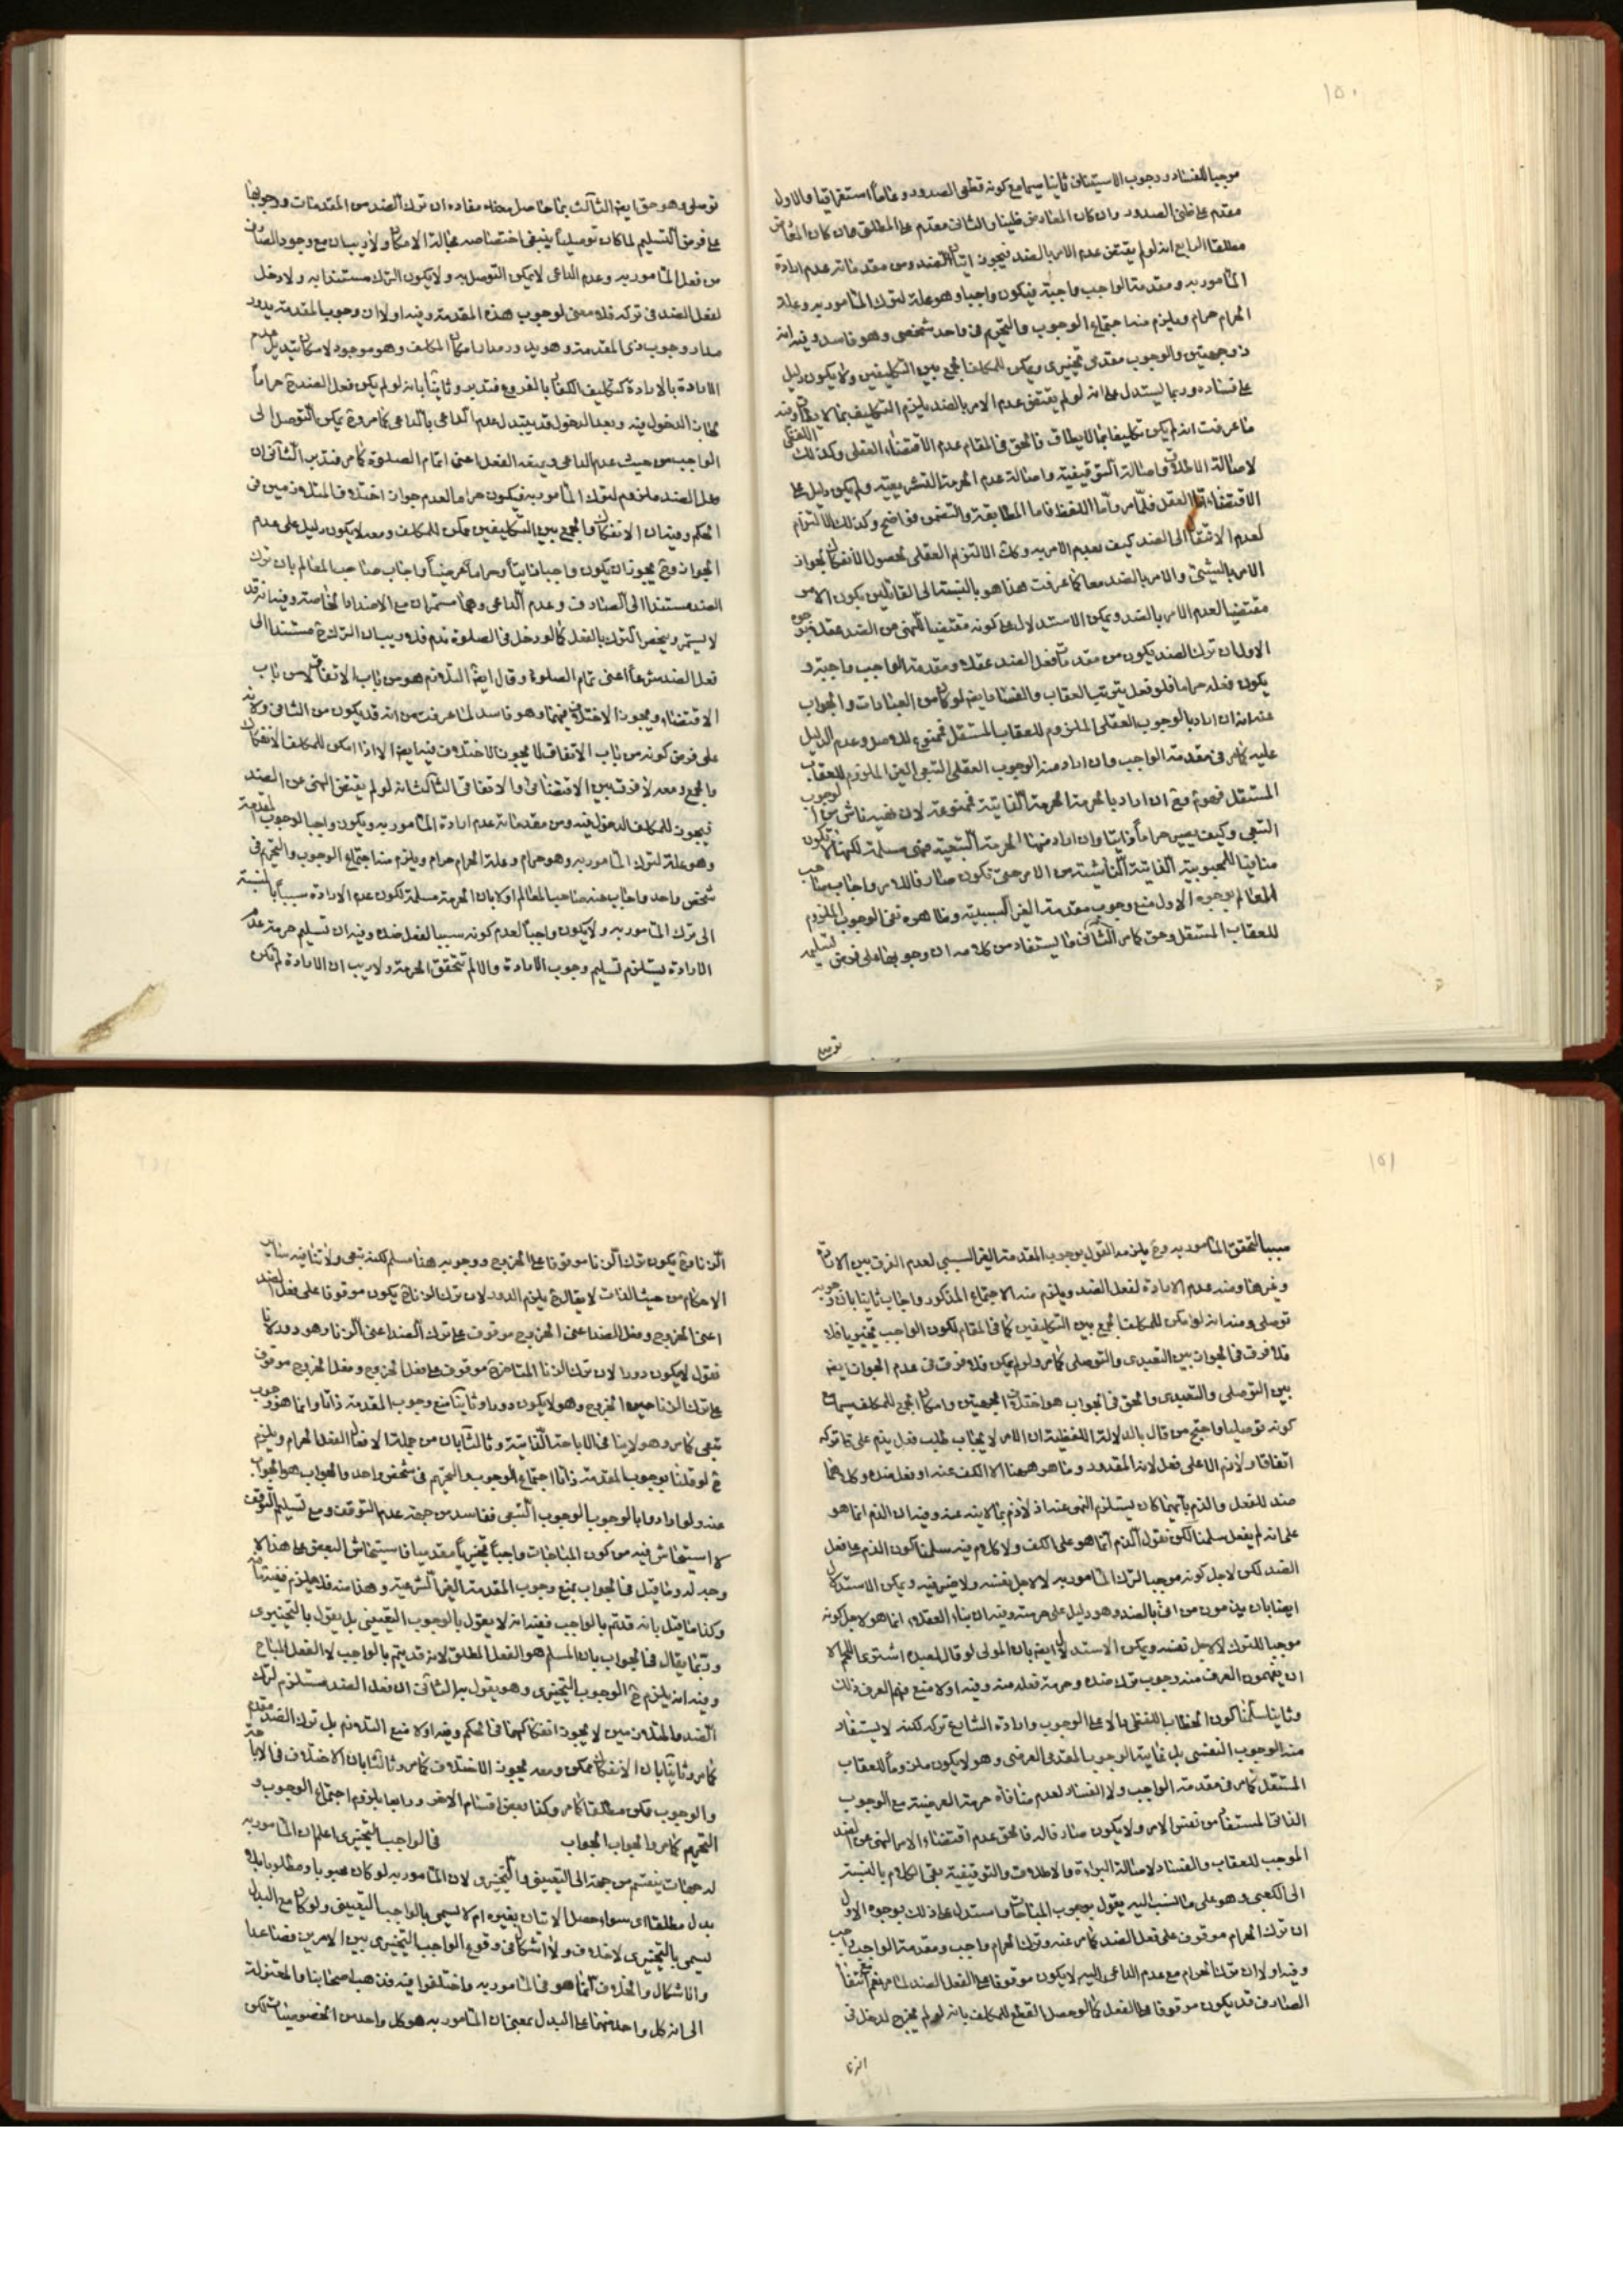 ١٥٠
موجبا للفساد ووجوب الاستيناف ثانيا سيما مع كونه قطعى الصدور وعاما استغراقيا والاول
مقدم على ظنى الصدور وان كان المعارض ظنيا والثانى مقدم على المطلق وان كان المعارض
مطلقا الرابع انه لو لم يقتض عدم الامر بالضد فيجوز اتيان الضد ومن مقدماته عدم ارادة
المامور به ومقدمة الواجب واجبة فيكون واجبا وهو علة لترك المامور به وعلة
الحرام حرام ويلزم منه اجتماع الوجوب والتحريم فى واحد شخصى وهو فاسد وفيه انه
ذو جهتين والوجوب مقدمى تخييرى ويمكن للمكلف الجمع بين التكليفين ولا يكون دليل
على فساده وربما يستدل على انه لو لم يقتض عدم الامر بالضد يلزم التكليف بما لا يطاق وفيه
ما عرفت انه لم يكن تكليفا بما لا يطاق فالحق فى المقام عدم الاقتضاء العقلى وكذلك اللفظى
لاصالة الاطلاق واصالة التوقيفية واصالة عدم الحرمة التشريعية ولم يكن دليل على
الاقتضاء اما العقل فلما مر واما اللفظ فاما المطابقة والتضمن فواضح وكذلك الالتزام
لعدم الانتقال الى الضد كيف بعدم الامر به وكذا الالتزام العقلى لحصول الانفكاك لجواز
الامر بالشيئ والامر بالضد معا كما عرفت هذا هو بالنسبة الى القائلين بكون الامر
مقتضيا لعدم الامر بالضد ويمكن الاستدلال على كونه مقتضيا للنهى عن الضد عقلا بوجوه
الاول ان ترك الضد يكون من مقدمات فعل الضد عقلا ومقدمة الواجب واجبة و
يكون فعله حراما فلو فعل يترتب العقاب والفساد ايضا لو كان من العبادات والجواب
عنه انه ان اراد بالوجوب العقلى الملزوم للعقاب المستقل فممنوع للاصل وعدم الدليل
عليه كما مر فى مقدمة الواجب وان اراد منه الوجوب العقلى التبعى الغير الملزوم للعقاب
المستقل فهو مع ان اراد بالحرمة الحرمة الذاتية فممنوعة لان ناش من الوجوب
التبعى وكيف يصير حراما ذاتيا وان اراد منها الحرمة التبعية فهى مسلمة لكنها لا تكون
منافيا للمحبوبية الذاتية الناشئة من الامر حتى تكون صارفا للامر واجاب صاحب
المعالم بوجوه الاول منع وجوب مقدمة الغير السببية وظاهره نفى الوجوب الملزوم
للعقاب المستقل وحق كما مر الثانى ما يستفاد من كلامه ان وجوبها على فرض تسليمه
توصلى
توصلى وهو حق ايضا الثالث بما حاصل معناه مفاده ان ترك الضد من المقدمات ووجوبها
على فرض التسليم لما كان توصليا ينبغى اختصاصه بحالة الامكان ولا ريب ان مع وجود الصارف
من فعل المامور به وعدم الداعى لا يمكن التوصل به ولا يكون الترك مستندا به ولا دخل
لفعل الضد فى تركه فلا معنى لوجوب هذه المقدمة وفيه اولا ان وجوب المقدمة يدور
مدار وجوب ذى المقدمة وهو يدور مدار امكان المكلف وهو موجود لامكان تبديل عدم
الارادة بالارادة كتكليف الكفار بالفروع فتدبر وثانيا بانه لو لم يكن فعل الضد حراما
لجاز الدخول فيه وبعد الدخول قد يتبدل عدم الداعى بالداعى كما مر ويمكن التوصل الى
الواجب من حيث عدم الداعى ويمنعه الفعل اعنى اتمام الصلوة كما مر فتدبر الثانى ان
فعل الضد ملزوم لترك المامور به فيكون حراما لعدم جواز اختلاف المتلازمين فى
الحكم وفيه ان الانفكاك والجمع بين التكليفين ممكن للمكلف ومعه لا يكون دليل على عدم
الجواز ويجوز ان يكون واجبا ذاتيا وحراما عرضيا واجاب صاحب المعالم بان ترك
الضد مستندا الى الصارف وعدم الداعى وهما مستمران مع الاضداد الخاصة وفيه انه قد
لا يستمر وينحصر الترك بالفعل كما لو دخل فى الصلوة ندم فلا ريب ان الترك مستندا الى
فعل الضد شرعا اعنى تمام الصلوة وقال ايضا التلازم هو من باب الاتفاق لا من باب
الاقتضاء ويجوز الاختلاف فيهما وهو فاسد لما عرفت من انه قد يكون من الثانى ولانه
على فرض كونه من باب الاتفاق لا يجوز الاختلاف فيه ايضا الا اذا امكن للمكلف الانفكاك
والجمع ومعه لا فرق بين الاقتضائى والاتفاقى الثالث انه لو لم يقتض النهى عن الضد
فيجوز للمكلف الدخول فيه ومن مقدماته عدم ارادة المامور به ويكون واجبا لوجوب المقدمة
وهو علة لترك المامور به وهو حرام وعلة الحرام حرام ويلزم منه اجتماع الوجوب والتحريم فى
شخص واحد واجاب عنه صاحب المعالم اولا بان الحرمة مسلمة لكون عدم الارادة سببا بالنسبة
الى ترك المامور به ولا يكون واجبا لعدم كونه سببا لفعل ضده وفيه ان تسليم حرمة عدم
الارادة يستلزم تسليم وجوب الارادة والا لم تتحقق الحرمة ولا ريب ان الارادة لم تكن
١٥١
سببا لتحقق المامور به ويلزمه القول بوجوب المقدمة الغير السببى لعدم الفرق بين الارادة
وغيرها ومنه عدم الارادة لفعل الضد ويلزم منه الاجتماع المذكور واجاب ثانيا بان وجوبه
توصلى ومنه انه لو امكن للمكلف الجمع بين التكليفين كما فى المقام لكون الواجب تخييريا
فلا فرق فى الجواز بين التعبدى والتوصلى كما مر ولو لم يمكن فلا فرق فى عدم الجواز ايضا
بين التوصلى والتعبدى والحق فى الجواب هو اختلاف الجهتين وامكان الجمع للمكلف سيما مع
كونه توصليا واحتج من قال بالدلالة اللفظية ان الامر لايجاب طلب فعل يذم على تاركه
اتفاقا ولا ذم الا على فعل لانه المقدور وما هو ههنا الا الكف عنه او فعل ضده وكلاهما
ضد للفعل والذم بايهما كان يستلزم النهى عنه اذ لا ذم بما لا ينه عنه وفيه ان الذم انما هو
على انه لم يفعل سلمنا لكن نقول الذم انما هو على الكف ولا كلام فيه سلمنا كون الذم على فعل
الضد لكن لاجل كونه موجبا لترك المامور به لا لاجل نفسه ولا ضير فيه ويمكن الاستدلال
ايضا بان يذمون من اتى بالضد وهو دليل على حرمته وفيه ان بناء العقلاء انما هو لاجل كونه
موجبا للترك لا لاجل نفسه ويمكن الاستدلال ايضا بان المولى لو قال لعبده اشترى اللحم لا
ان يفهمون العرف منه وجوب ترك ضده وحرمة فعله منه وفيه اولا منع فهم العرف ذلك
وثانيا سلمنا كون الخطاب اللفظى دالا على الوجوب وارادة الشارع تركه لكنه لا يستفاد
منه الوجوب النفسى بل غايته الوجوب المقدمى العرضى وهو لا يكون ملزوما للعقاب
المستقل كما مر فى مقدمة الواجب ولا الفساد لعدم منافاة حرمة العرضية مع الوجوب
الذاتى المستفاد من نفس الامر ولا يكون صارفا له فالحق عدم اقتضاء الامر النهى عن الضد
الموجب للعقاب والفساد لاصالة البراءة والاطلاق والتوقيفية بقى الكلام بالنسبة
الى الكعبى وهو على ما النسب اليه يقول بوجوب المباحات واستدل على ذلك بوجوه الاول
ان ترك الحرام موقوف على فعل الضد كما مر عنه وترك الحرام واجب ومقدمة الواجب واجب
وفيه اولا ان ترك الحرام مع عدم الداعى اليه لا يكون موقوفا على الفعل الضد لما مر نعم مع انتفاء
الصارف قد يكون موقوفا على الفعل كما لو حصل القطع للمكلف بانه لو لم يخرج لدخل فى
الزنا
الزنا ويكون ترك الزنا موقوفا على الخروج ووجوبه هذا مسلم لكنه تبعى ولا تنافيه ساير
الاحكام من حيث الذات لا يقال يلزم الدور لان ترك الزنا يكون موقوفا على فعل الضد
اعنى الخروج وفعل الضد اعنى الخروج موقوف على ترك الضد اعنى الزنا وهو دور لانا
نقول لا يكون دورا لان ترك الزنا المتاخر موقوف على فعل الخروج وفعل الخروج موقوف
على ترك الزنا حين الخروج وهو لا يكون دورا وثانيا منع وجوب المقدمة ذاتا وانما هو وجوب
تبعى كما مر وهو لا ينافى الاباحة الذاتية وثالثا بان من جملة الافعال الفعل الحرام ويلزم
ح لو قلنا بوجوب المقدمة ذاتا اجتماع الوجوب والتحريم فى شخص واحد والجواب هو الجواب
عنه ولو ارادوا بالوجوب الوجوب التبعى ففاسد من جهة عدم التوقف ومع تسليم التوقف
لا استيحاش فيه من كون المباحات واجبا تخييريا مقدميا فاستيحاش البعض على هذا لا
وجه له وما قيل فى الجواب بمنع وجوب المقدمة الغير الشرعية وهذا منه فلا يلزم ففيه ما مر
وكذا ما قيل بانه قد يتم بالواجب ففيه انه لا يقول بالوجوب التعيينى بل يقول بالتخييرى
وربما يقال فى الجواب بان المسلم هو الفعل المطلق لانه قد يتم بالواجب لا الفعل المباح
وفيه انه يلزم ح الوجوب التخييرى وهو يقول به الثانى ان فعل الضد مستلزم لترك
الضد والمتلازمين لا يجوز انفكاكهما فى الحكم وفيه اولا منع التلازم بل ترك الضد مقدم
كما مر وثانيا بان الانفكاك ممكن ومعه يجوز الاختلاف كما مر وثالثا بان الاختلاف فى الاباحة
والوجوب ممكن مطلقا كما مر وكذا بعض اقسام الاخر ورابعا يلزم اجتماع الوجوب و
التحريم كما مر والجواب الجواب فى الواجب التخييرى اعلم ان المامور به
له جهات ينقسم من جهة الى التعيينى والتخييرى لان المامور به لو كان محبوبا ومطلوبا بلا
بدل مطلقا اى سواء حصل الاتيان بغيره ام لا يسمى بالواجب التعيينى ولو كان مع البدل
يسمى بالتخييرى لا خلاف ولا اشكال فى وقوع الواجب التخييرى بين الامرين فصاعدا
وانما الاشكال والخلاف انما هو فى المامور به واختلفوا فيه فذهب اصحابنا والمعتزلة
الى انه كل واحد منهما على البدل بمعنى ان المامور به هو كل واحد من الخصوصيات لكن